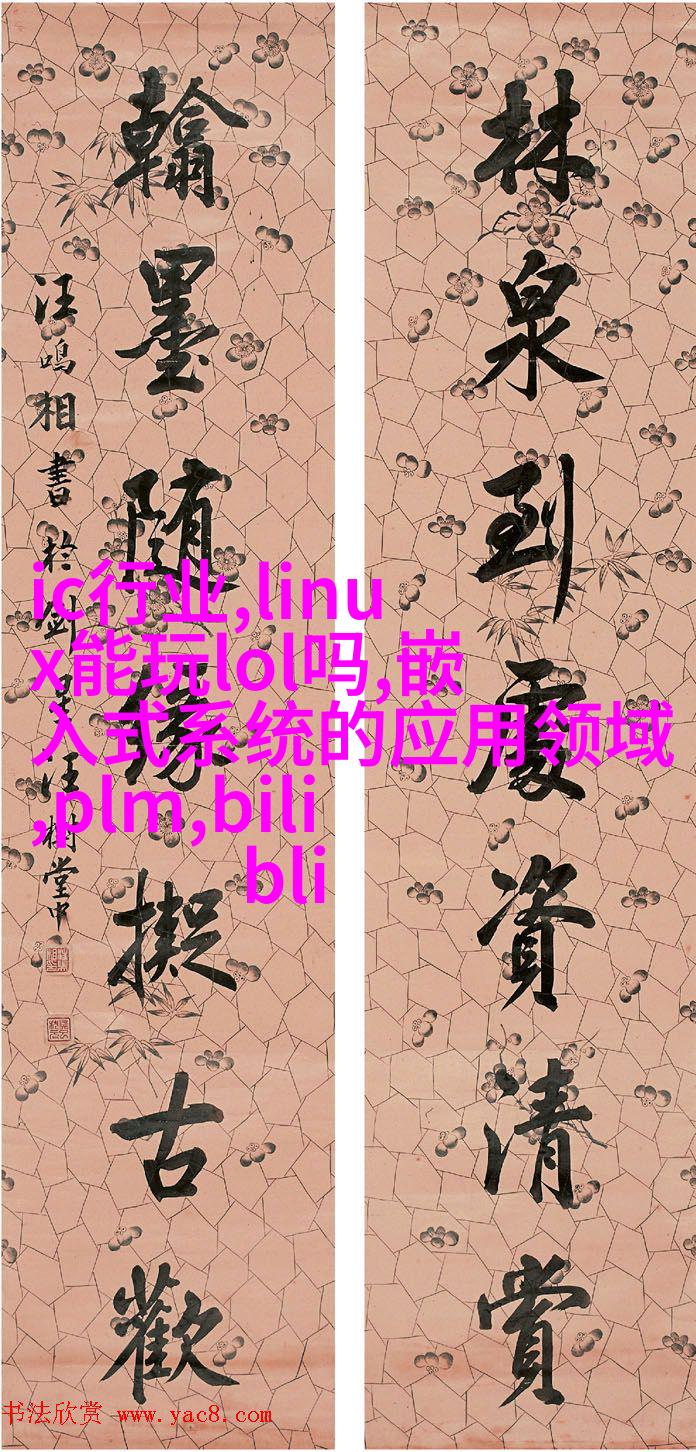 林泉到處資清賞
翰墨随緣擬古歡
汪鳴相書於劍汪樹堂中
ic行业,linu
x能玩lol吗,嵌
入式系统的应用领域
,plm,bili
bli
书法欣赏 www.yac8.com